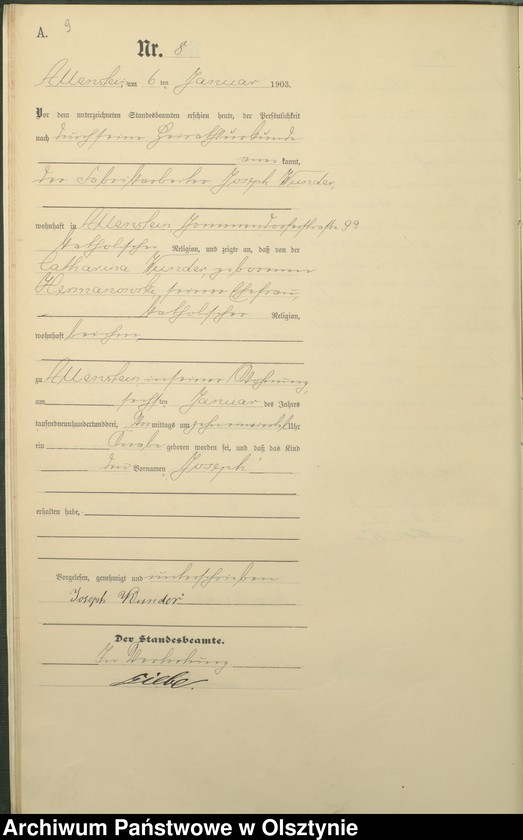 A.
9
Nr. 8
Allenstein, am 6 ten Januar 1903.
Vor dem unterzeichneten Standesbeamten erschien heute, der Persönlichkeit
nach durch seine Heirathsurkunde
anerkannt,
der Fabrikarbeiter Joseph Wunder,
wohnhaft in Allenstein
katholischer Religion, und zeigte an, daß von der
Catharina Wunder, geborenen
Hermanowski, seiner Ehefrau,
katholischer Religion,
wohnhaft bei ihm
zu Allenstein in seiner Wohnung,
am sechsten Januar des Jahres
tausendneunhundertunddrei, mittags um Uhr
ein Knabe geboren worden sei, und daß das Kind
den Vornamen Joseph
erhalten habe.
Vorgelesen, genehmigt und unterschrieben
Joseph Wunder
Der Standesbeamte.
In Vertretung
Archiwum Państwowe w Olsztynie